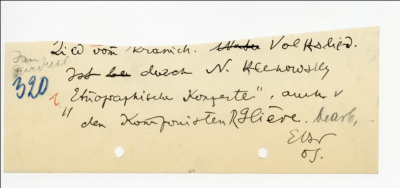 Lied vom Kranich. Volkslied.
Ist durch N. Klenowsky
320
"Etnographische Konzerte", auch
den Komponisten R Glière. bearb.